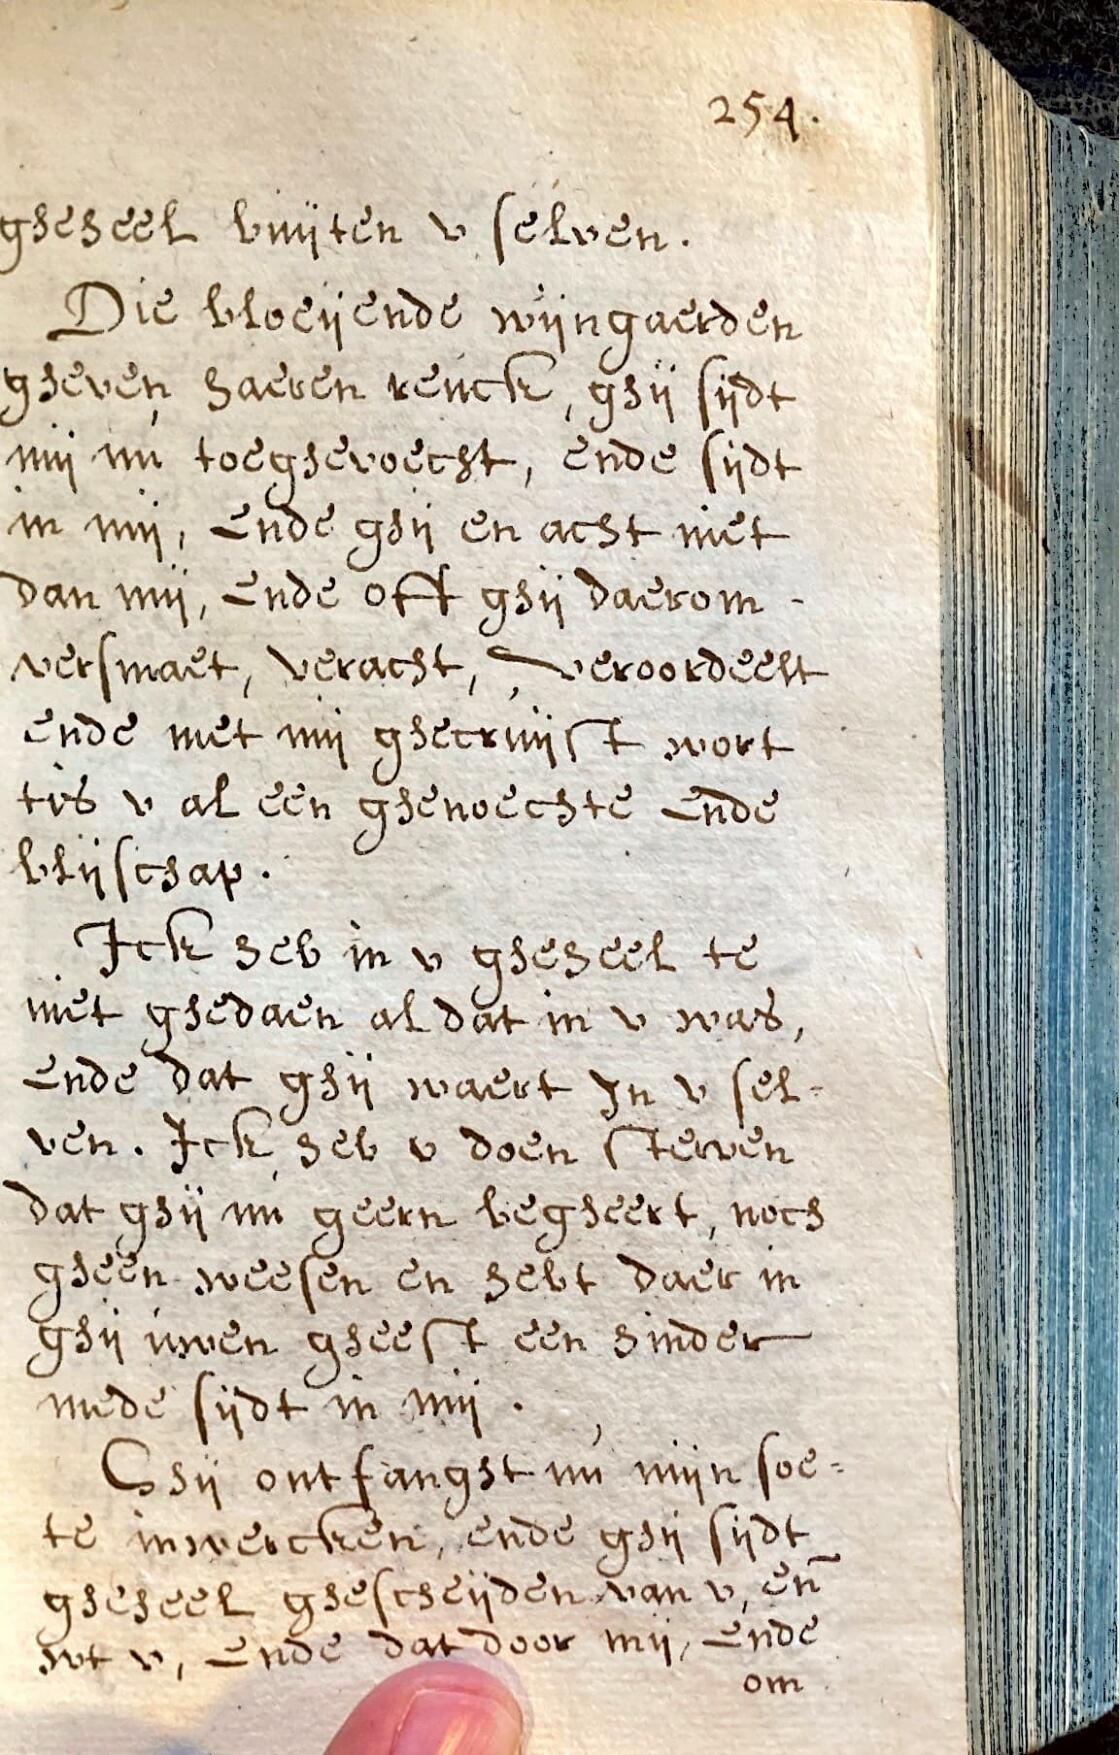 254.
gheheel buijten v selven.
Die bloeijende wijngaerden
gheven haeren reuck, ghij sijdt
mij nu toeghevoecht, ende sijdt
in mij, ende ghij en acht niet
dan mij, ende oft ghij daerom -
versmaet, veracht, veroordeelt
ende met mij ghecruijst wort
tis v al een ghenoechte ende
blijschap.
Ick heb in v gheheel te
niet ghedaen al dat in v was,
ende dat ghij waert In v sel-
ven. Ick heb v doen sterven
dat ghij nu geern begheert, noch
gheen weesen en hebt daer in
ghij uwen gheest een hinder
mede sijdt in mij.
Ghij ontfanght nu mijn soe=
te inwercken, ende ghij sijdt
gheheel ghescheijden van v, en̄
wt v, ende dat door mij, ende
om